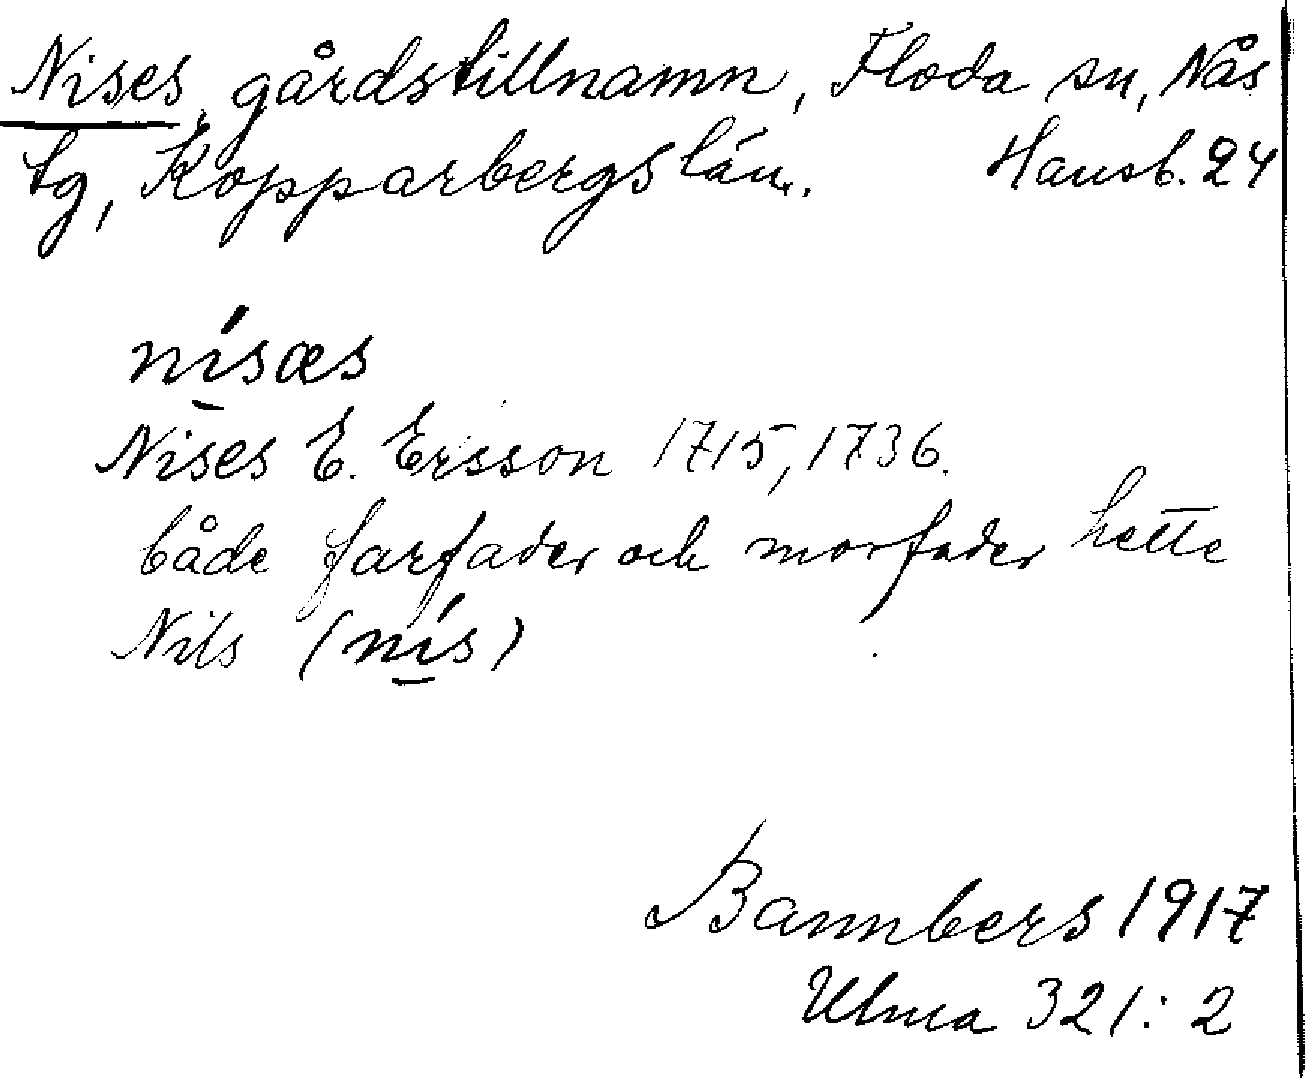 Nises, gårdstillnamn, Floda sn, Nås
tg, Kopparbergs län. Hansb. 24
nísæs
Nises E. Ersson 1715, 1736.
både farfader och morfader hette
Nils (nís)
Bannbers 1917
Ulma 321:2